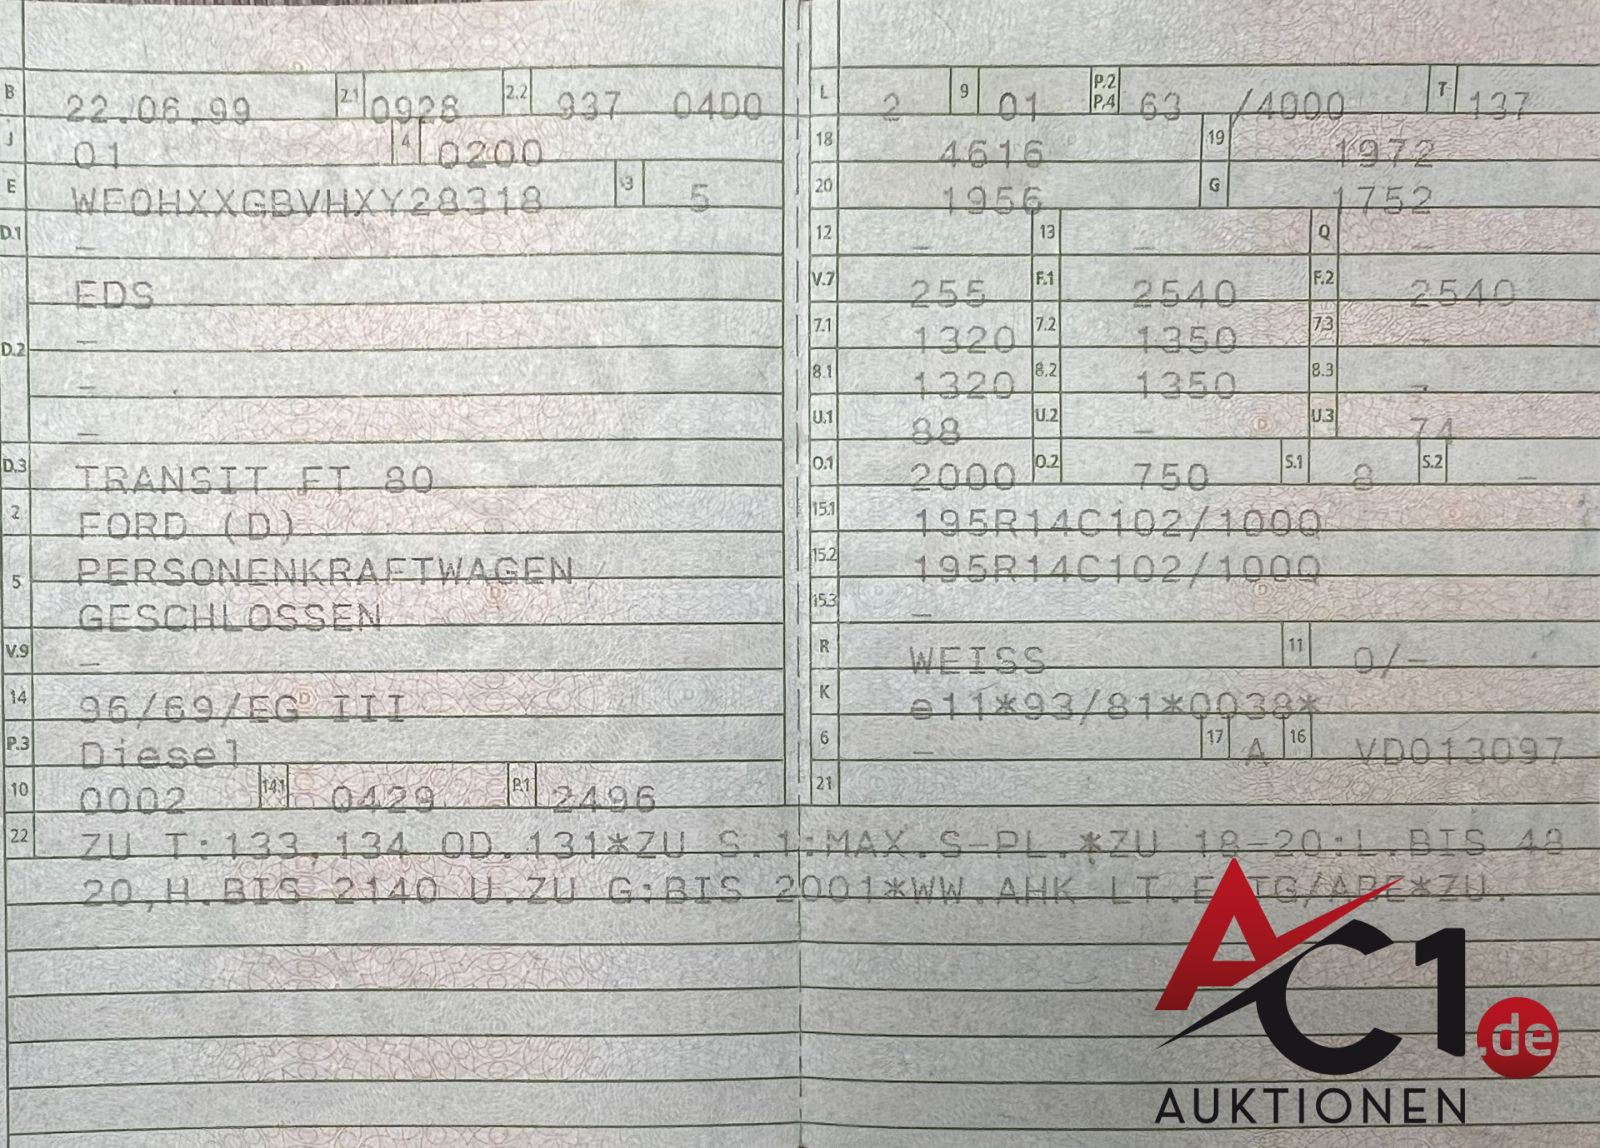 B 22.06.99 2.1 0928 2.2 937 0400
J 01 4 0200
E WF0HXXGBVHXY28318 3 5
D.1 –
EDS
D.2 –
–
–
D.3 TRANSIT FT 80
2 FORD (D)
5 PERSONENKRAFTWAGEN
GESCHLOSSEN
V.9 –
14 96/69/EG III
P.3 Diesel
10 0002 14.1 0429 P.1 2496
L 2 9 01 P.2 P.4 63 /4000 T 137
18 4616 19 1972
20 1956 G 1752
12 – 13 – Q –
V.7 255 F.1 2540 F.2 2540
7.1 1320 7.2 1350 7.3 –
8.1 1320 8.2 1350 8.3 –
U.1 88 U.2 – U.3 74
O.1 2000 O.2 750 S.1 8 S.2 –
15.1 195R14C102/100Q
15.2 195R14C102/100Q
15.3 –
R WEISS 11 0/–
K e11*93/81*0038*
6 – 17 A 16 VD013097
21
22 ZU T:133,134 OD.131*ZU S.1:MAX.S-PL.*ZU 18-20:L.BIS 48
20,H.BIS 2140 U.ZU G:BIS 2001*WW.AHK LT.EGTG/ABE*ZU.
AC1.de
AUKTIONEN